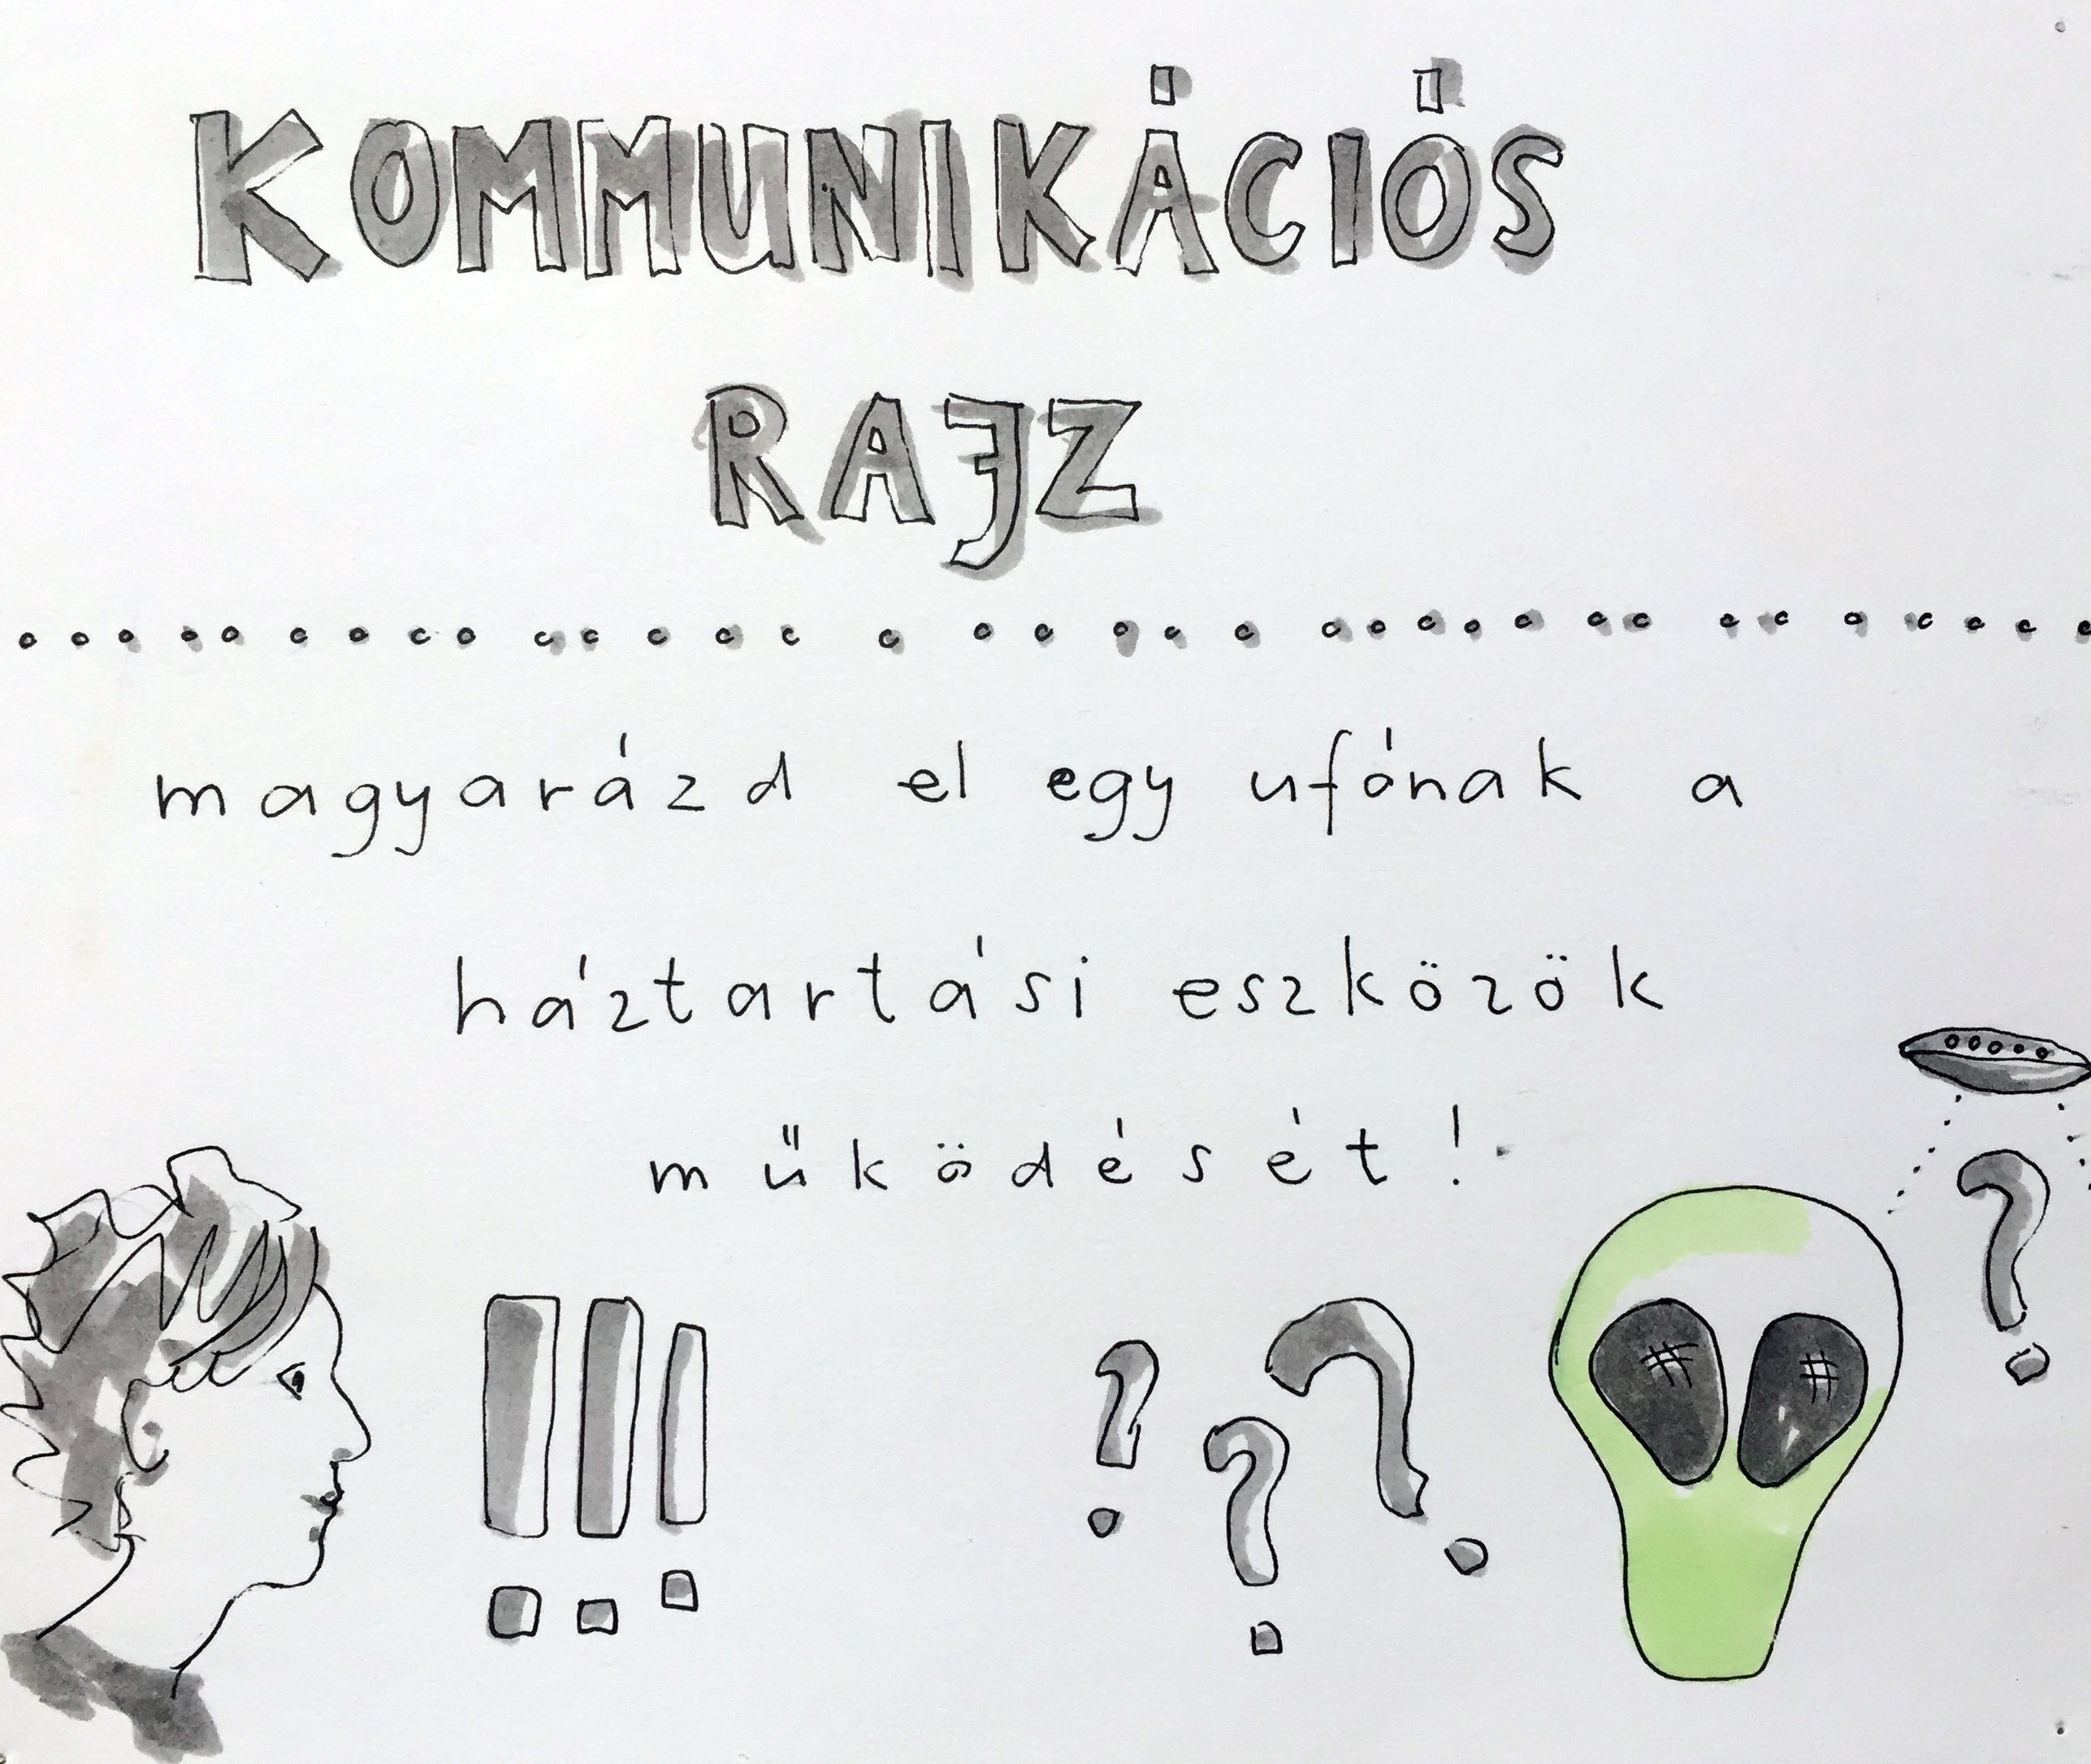 KOMMUNIKÁCIÓS
RAJZ
magyarázd el egy ufónak a
háztartási eszközök
működését!
!!!
? ? ? ?